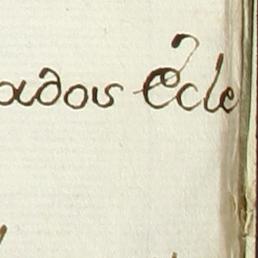 ados Ecle